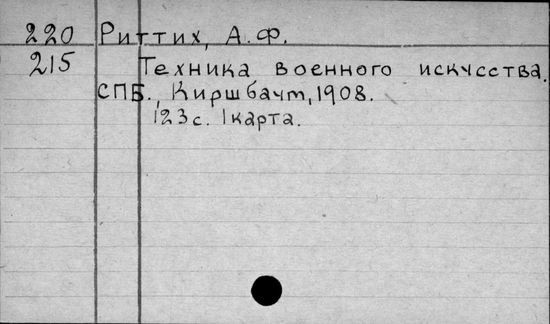 220 Риттих, А.Ф.
215 Техника военного искусства.
СПБ., Киршбаум, 1908.
123с. 1карта.